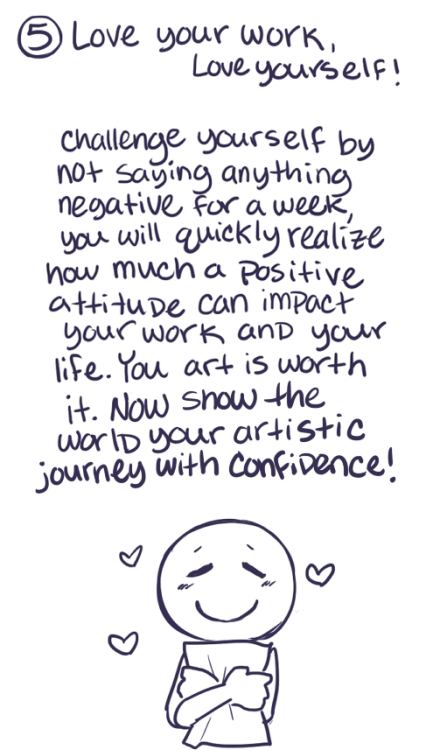 5 Love your work,
Love yourself!
Challenge yourself by
not saying anything
negative for a week,
you will quickly realize
how much a positive
attitude can impact
your work and your
life. You art is worth
it. Now show the
world your artistic
journey with confidence!